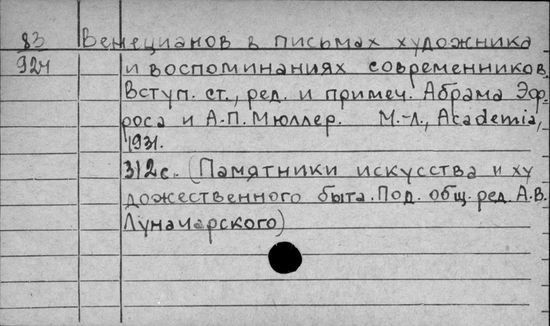 83 Венецианов в письмах художника
924 и воспоминаниях современников.
Вступ. ст., ред. и примеч. Абрама Эф-
роса и А.П. Мюллер. М.-Л., Academia,
1931.
312 с. (Памятники искусства и ху
дожественного быта. Под. общ. ред. А.В.
Луначарского)